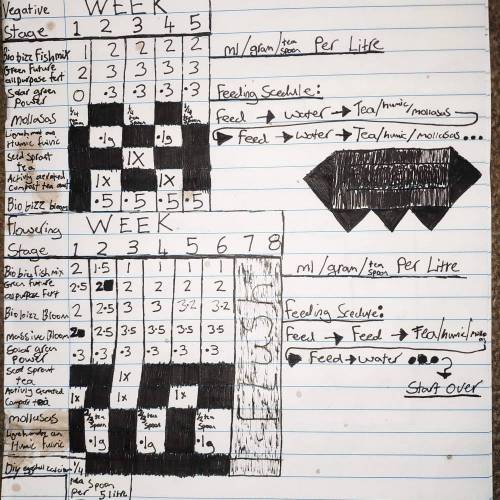 Vegative WEEK
Stage 1 2 3 4 5
Bio bizz Fishmix 1 2 2 2 2
Green Future all purpose fert 2 3 3 3 3
Solar green Power 0 .3 .3 .3 .3
mollasas 1/4 tea spoon
Humic fulvic .1g .1g
Seed sprout tea 1X
Activly aerated compost tea 1X 1X
Bio bizz bloom .5 .5 .5 .5
ml/gram/tea spoon Per Litre
Feeding Scedule:
Feed → water → Tea/humic/mollasas
Feed → water → Tea/humic/mollasas ...
flowering WEEK
Stage 1 2 3 4 5 6 7 8
Bio bizz Fishmix 2 1.5 1 1 1 1
Green Future all purpose fert 2.5 2 2 2 2 2
Bio bizz Bloom 2 2.5 3 3 3.2 3.2
massive Bloom 2 2.5 3.5 3.5 3.5 3.5
Solar green Power .3 .3 .3 .3 .3 .3
Seed sprout tea 1X
Activly aerated Compost tea 1X 1X 1X
mollasas tea spoon tea spoon tea spoon
Humic fulvic .1g .1g .1g
Diy eggshell calcium 1/4
tea Spoon per 5 Litre
ml/gram/tea spoon Per Litre
Feeding Scedule:
Feed → Feed → Tea/humic/
Feed → water
Start Over